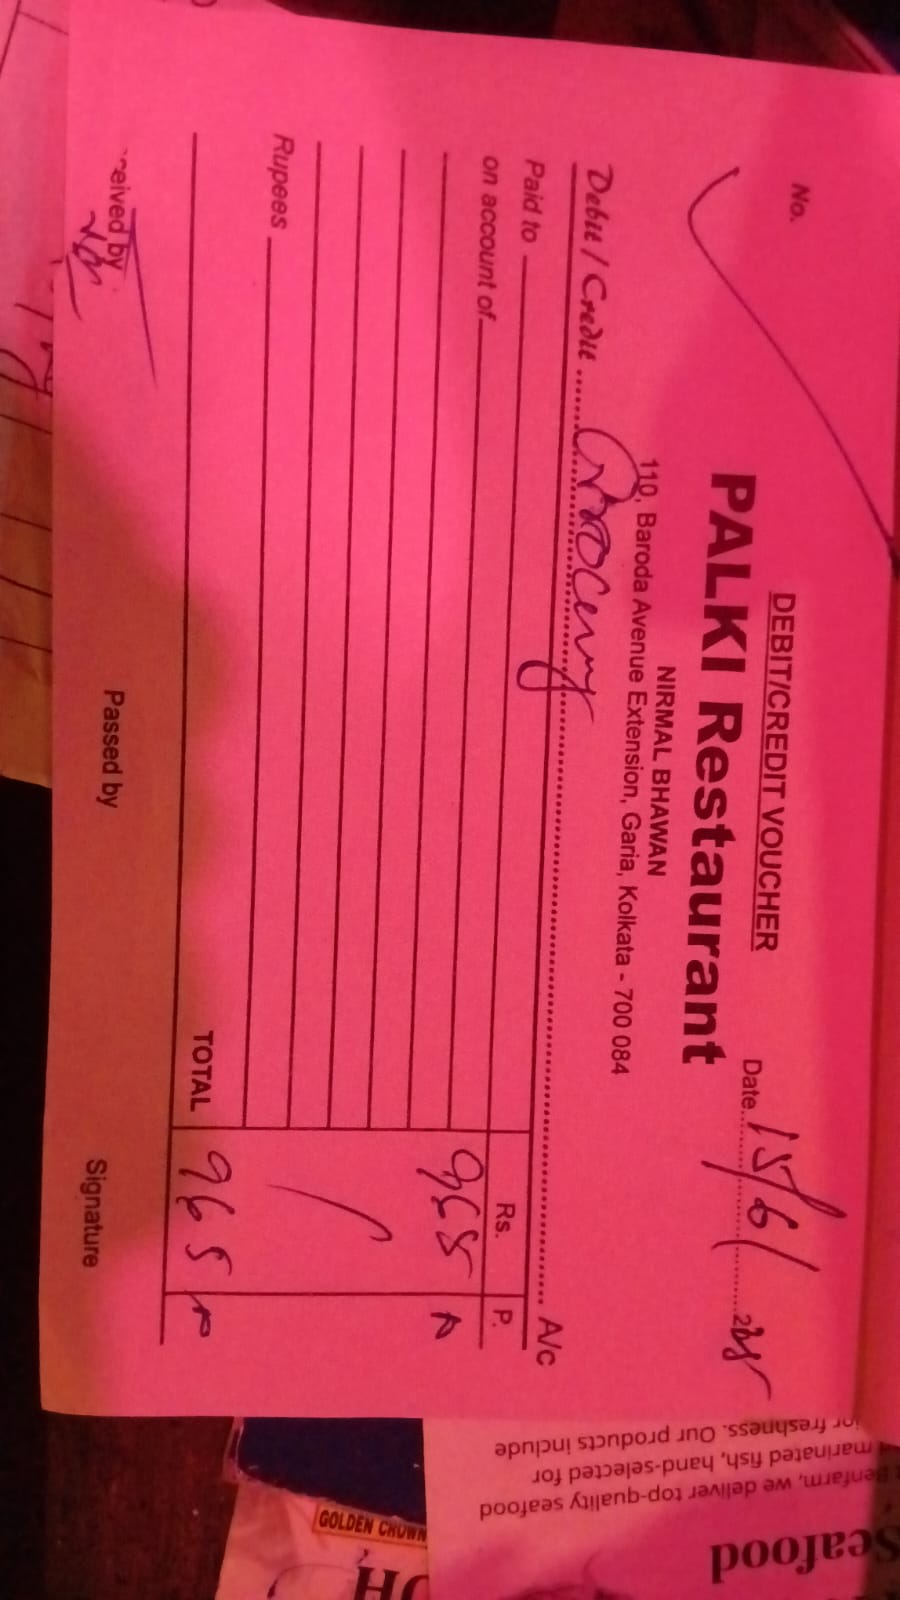 DEBIT/CREDIT VOUCHER
No.
Date 15/6/ 2025
PALKI Restaurant
NIRMAL BHAWAN
110, Baroda Avenue Extension, Garia, Kolkata - 700 084
Debit / Credit Grocery A/c
Paid to
Rs. P.
on account of
965
Rupees
TOTAL 965
eived by
Passed by
Signature
Seafood
enfarm, we deliver top-quality seafood
marinated fish, hand-selected for
ior freshness. Our products include
GOLDEN CROWN